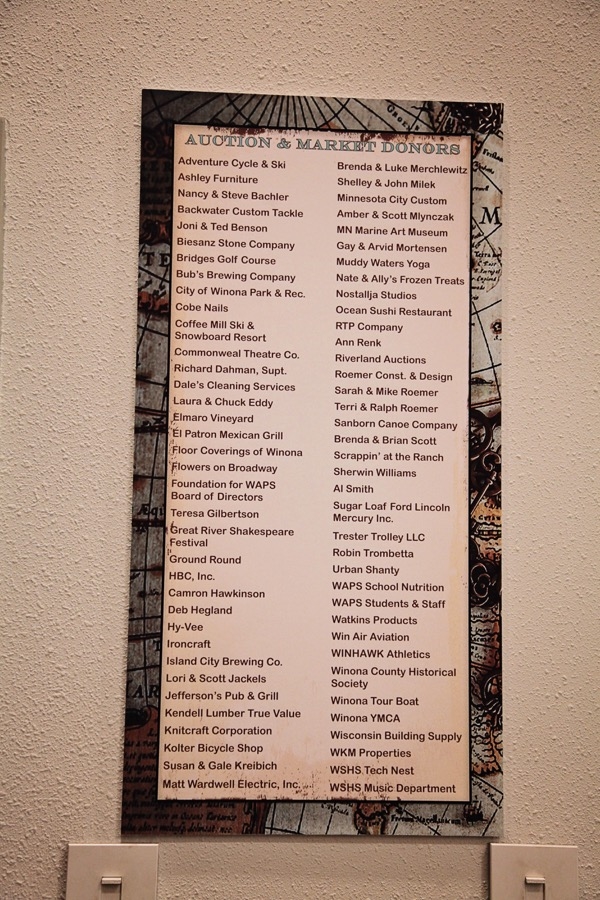 AUCTION & MARKET DONORS
Adventure Cycle & Ski
Ashley Furniture
Nancy & Steve Bachler
Backwater Custom Tackle
Joni & Ted Benson
Biesanz Stone Company
Bridges Golf Course
Bub's Brewing Company
City of Winona Park & Rec.
Cobe Nails
Coffee Mill Ski &
Snowboard Resort
Commonweal Theatre Co.
Richard Dahman, Supt.
Dale's Cleaning Services
Laura & Chuck Eddy
Elmaro Vineyard
El Patron Mexican Grill
Floor Coverings of Winona
Flowers on Broadway
Foundation for WAPS
Board of Directors
Teresa Gilbertson
Great River Shakespeare
Festival
Ground Round
HBC, Inc.
Camron Hawkinson
Deb Hegland
Hy-Vee
Ironcraft
Island City Brewing Co.
Lori & Scott Jackels
Jefferson's Pub & Grill
Kendell Lumber True Value
Knitcraft Corporation
Kolter Bicycle Shop
Susan & Gale Kreibich
Matt Wardwell Electric, Inc.
Brenda & Luke Merchlewitz
Shelley & John Milek
Minnesota City Custom
Amber & Scott Mlynczak
MN Marine Art Museum
Gay & Arvid Mortensen
Muddy Waters Yoga
Nate & Ally's Frozen Treats
Nostallja Studios
Ocean Sushi Restaurant
RTP Company
Ann Renk
Riverland Auctions
Roemer Const. & Design
Sarah & Mike Roemer
Terri & Ralph Roemer
Sanborn Canoe Company
Brenda & Brian Scott
Scrappin' at the Ranch
Sherwin Williams
Al Smith
Sugar Loaf Ford Lincoln
Mercury Inc.
Trester Trolley LLC
Robin Trombetta
Urban Shanty
WAPS School Nutrition
WAPS Students & Staff
Watkins Products
Win Air Aviation
WINHAWK Athletics
Winona County Historical
Society
Winona Tour Boat
Winona YMCA
Wisconsin Building Supply
WKM Properties
WSHS Tech Nest
WSHS Music Department